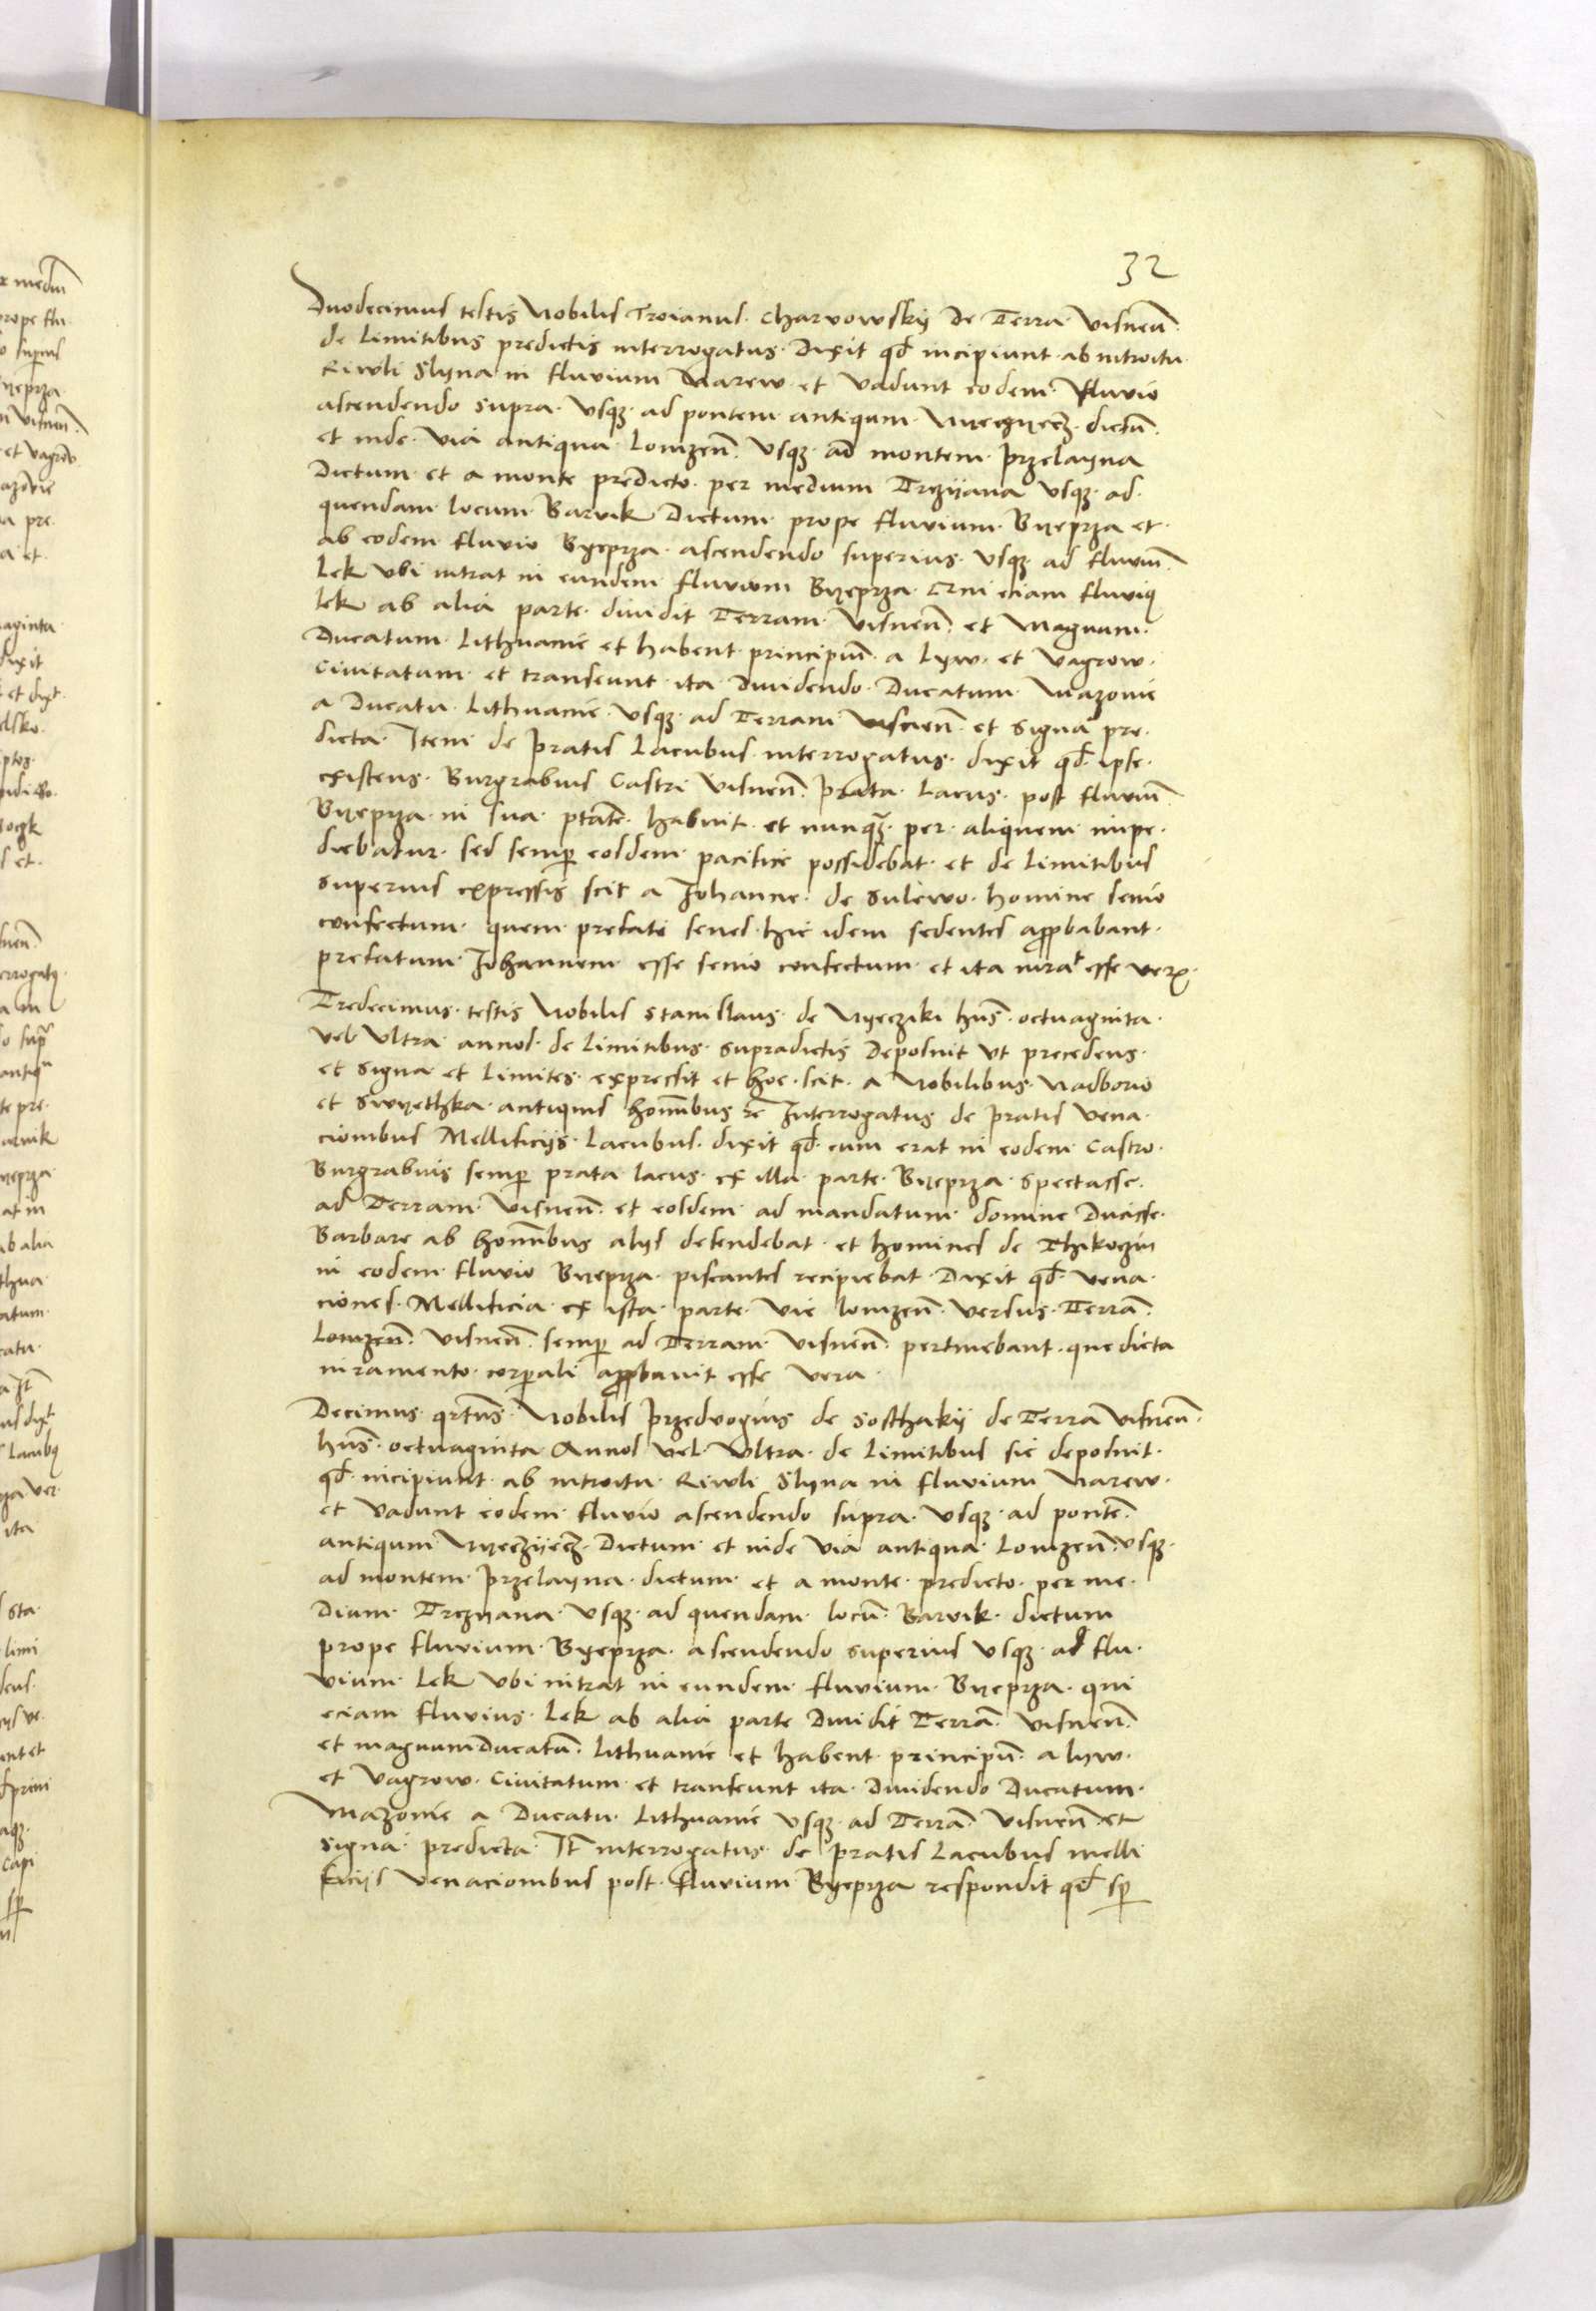 32
Duodecimus testis Nobilis Troianus Charvowskij de Terra Visneñ.
de limitibus predictis interrogatus. Dixit qđ incipiunt ab introitu
Riwli Slijna in fluvium Narew et vadunt eodem fluvio
ascendendo supra usqȝ ad pontem antiqum Nyeczyecz dictũ.
et inde via antiqua Lomzeñ. usqȝ ad montem Przelayna
Dictum et a monte predicto per medium Trczijana usqȝ ad
quendam locum Barvik Dictum prope fluvium Byeprza et
ab eodem fluvio Byeprza ascendendo superius usqȝ ad fluviũ
Lek ubi intrat in eundem fluvium Byeprza. Qui eciam fluvius
lek ab alia parte dividit Terram Visneñ. et Magnum
Ducatum Lithuanie et habent principiũ a Lyw et Vagrow
Civitatum et transeunt ita dividendo Ducatum Mazovie
a Ducatu Lithuanie usqȝ ad Terram Visneñ et signa pre
dicta. Item de pratis Lacubus interrogatus dixit qđ ipse
existens Burgrabius Castri Visneñ. prata Lacus post fluviũ
Byeprza in sua ptãte habuit et nunqȝ per aliquem impe
diebatur. sed semp eosdem pacifice possidebat et de limitibus
superius expressis scit a Johanne de Sulewo homine senio
confectum quem prefati senes hic idem sedentes approbabant
prefatum Johannem esse senio confectum et ita iurat esse verx
Tredecimus testis Nobilis Stanislaus de Nyecziki hñs octuaginta
vel ultra annos de limitibus supradictis deposuit ut precedens
et signa et limites expressit et hoc scit a Nobilibus Nadborio
et Swyethka antiquis homĩbus rc Interrogatus de pratis vena
cionibus Mellificijs Lacubus dixit qđ cum erat in eodem Castro
Burgrabius semp prata lacus ex illa parte Byeprza spectasse
ad Terram Visneñ. et eosdem ad mandatum domine Ducisse
Barbare ab homĩbus alijs defendebat et homines de Thikoczin
in eodem fluvio Byeprza piscantes recipiebat Dixit qđ vena
ciones Mellificia ex ista parte vie lomzeñ versus Terrã
Lomzeñ. Visneñ. semp ad Terram Visneñ. pertinebant. que dicta
iuramento corpali approbavit esse vera
Decimus qrtus Nobilis Przedvogius de Sosthakij de Terra Visneñ.
hñs octuaginta Annos vel ultra de limitibus sic deposuit
qđ incipiunt ab introitu Riwli Slyna in fluvium Narew
et vadunt eodem fluvio ascendendo supra usqȝ ad pontẽ
antiqum Nyeczijecz Dictum et inde via antiqua Lomzeñ. usqȝ
ad montem Przelayna dictum et a monte predicto per me
dium Trczyana usqȝ ad quendam locũ Barvik dictum
prope fluvium Byeprza ascendendo superius usqȝ ad flu
vium Lek ubi intrat in eundem fluvium Byeprza qui
eciam fluvius Lek ab alia parte dividit Terrã Visneñ.
et magnum Ducatũ Lithuanie et habent principiũ a Lyw
et Vagrow Civitatum et transeunt ita dividendo Ducatum
Mazovie a Ducatu Lithuanie usqȝ ad Terrã Visneñ et
signa predicta. It̃ interrogatus de pratis Lacubus melli
ficijs venacionibus post fluvium Byeprza respondit qđ sp